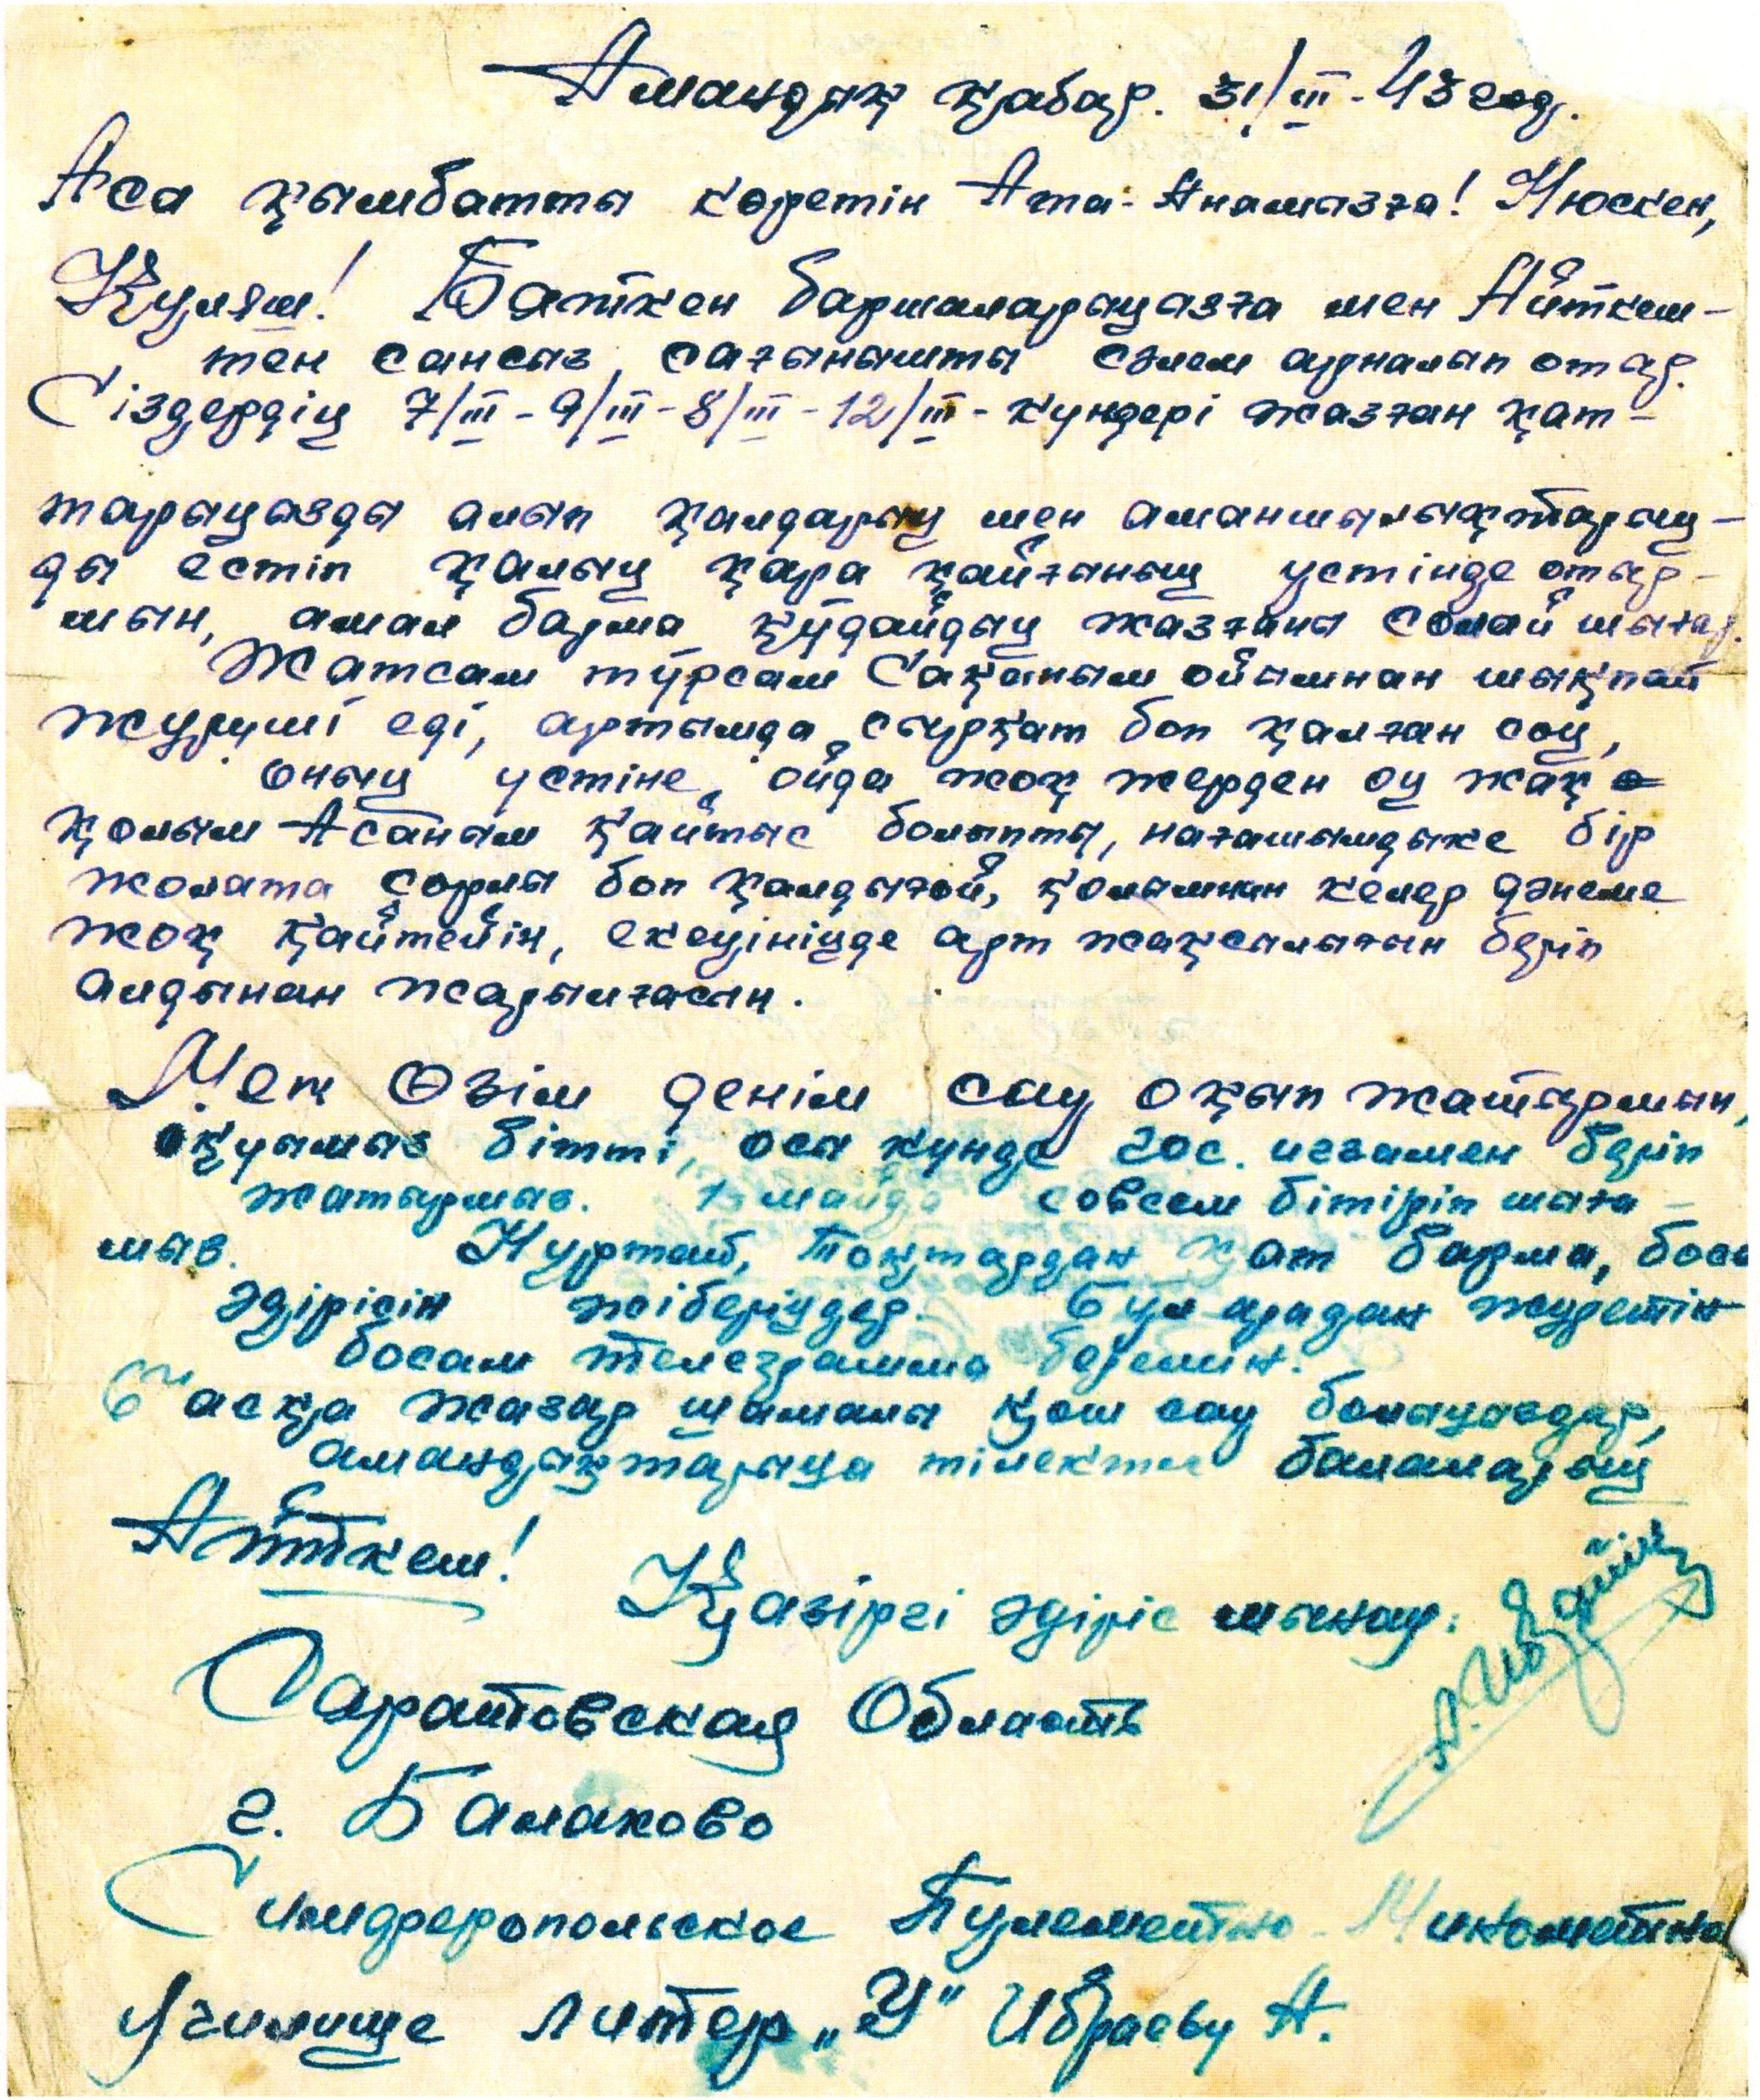 Амандық қабар. 31/III-43 год.
Аса қымбатты көретін Ата-Анамызға! Нюскен,
Куляш! Баткен баршаларыңызға мен Айткеш-
тен сансыз, сағынышты сәлем арналып отыр.
Сіздердің 7/III-9/III-8/III-12/III- күндері жазған қат-
тарыңызды алып қалдарың мен аманшылықтарың-
ды естіп қалың қара қайғының үстінде отыр-
мын, амал барма құдайдың жазғаны солай шығар.
Жатсам тұрсам Сақаным ойымнан шықпай
жүруші еді, артымда сырқат боп қалған соң,
оның үстіне, ойда жоқ жерден оң жақ
қолым Асаным қайтыс болыпты, нағашымдыке бір
жолата сорлы боп қалдығой, қолымнан келер дәнеме
жоқ қайтейін, екеуініңде арт жақсылығын беріп
алдынан жарылғасын.
Мен Өзім денім сау оқып жатырмын,
оқуымыз бітті, осы күнде гос. игзамен беріп
жатырмыз. майда совсем бітіріп шыға-
мыз. Нуртаб, Тоқтардан қат барма, боса
әдірісін жіберіңдер. Бұл арадан жүретін
босам телеграмма беремін.
Басқа жазар шамалы қош сау болыңыздар,
амандықтарыңа тілектес балаларың
Айткеш! Қазіргі әдіріс мынау:
А. Ибрайын
Саратовская Область
г. Балаково
Симдреропольское Пулеметно-Минометное
Училище литер „У" Ибраеву А.